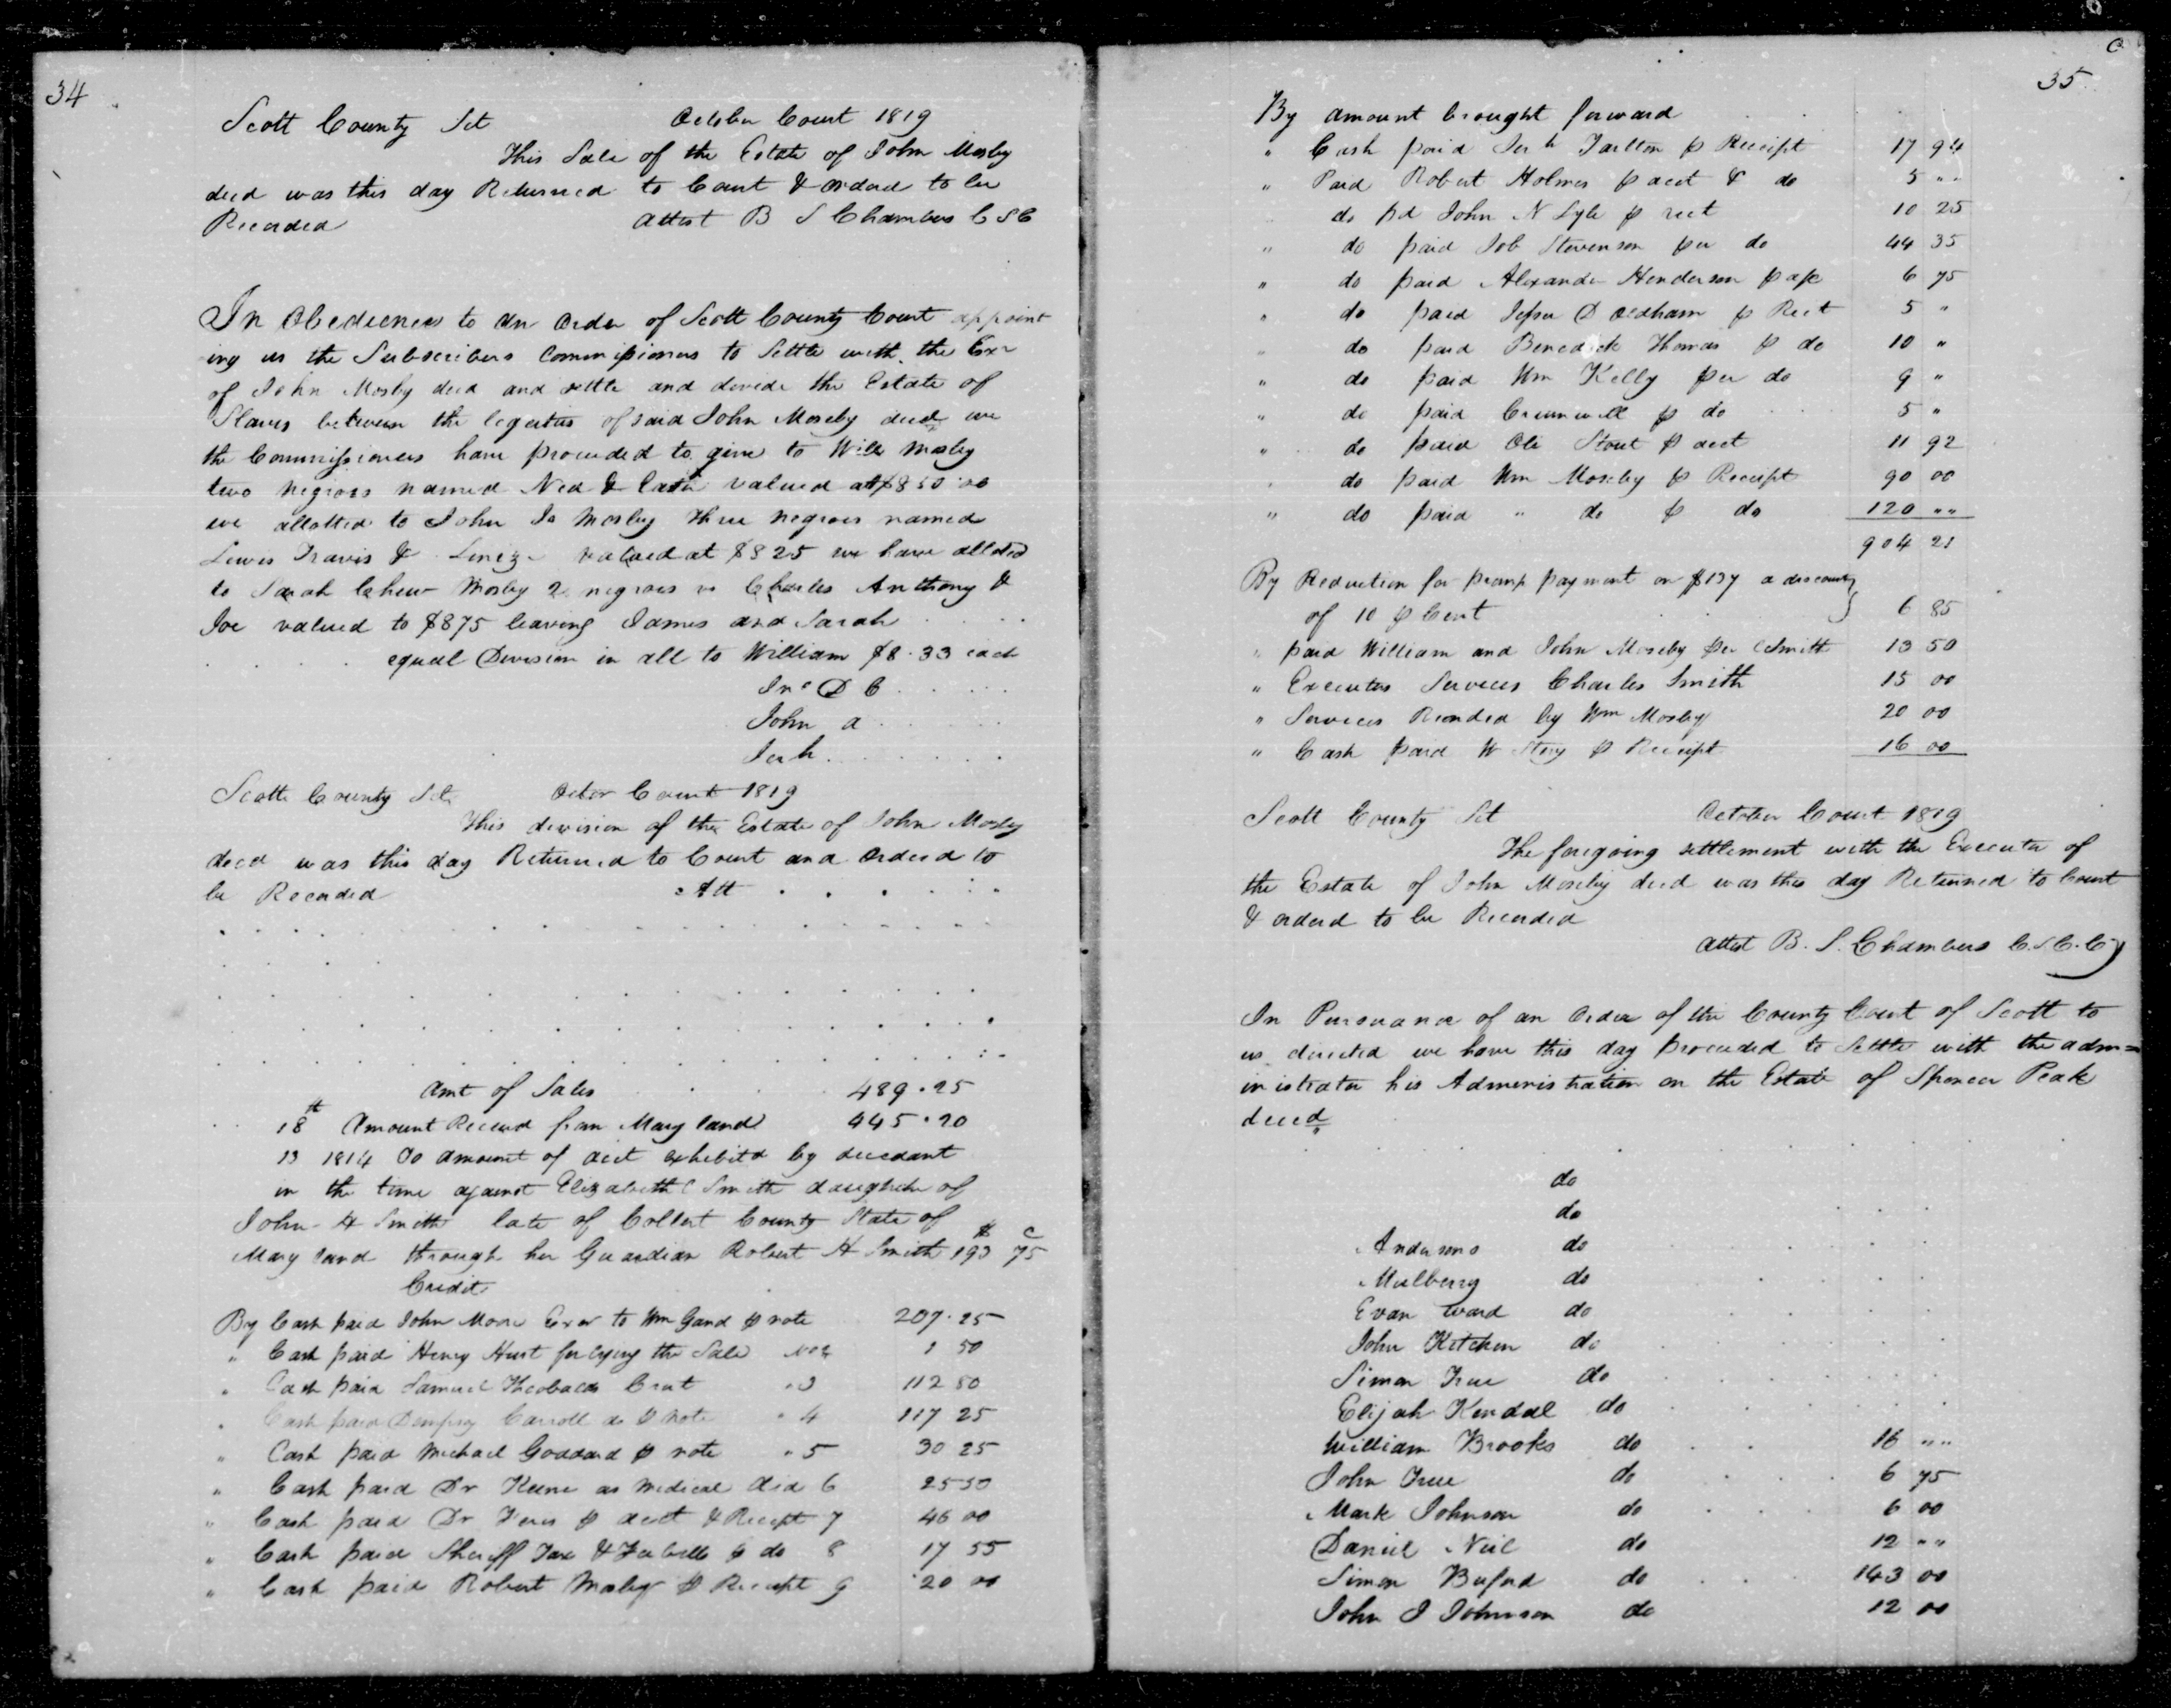 34
Scott County Sct October Court 1819
This Sale of the Estate of John Mosby
decd was this day Returned to Court & ordered to be
Recorded Attest B S Chambers C S C
In Obedience to an order of Scott County Court appoint
ing us the Subscribers Commissioners to Settle with the Exr
of John Mosby decd and settle and devide the Estate of
Slaves between the legatees of said John Moseby decd we
the Commissioners have proceeded to give to Will Mosby
two negroes named Ned & valued at $850.00
we allotted to John Mosby three negroes named
Lewis Travis & valued at $825 we have alloted
to Sarah Chew Mosby 2 negroes Charles Anthony &
Joe valued to $875 leaving James and Sarah
equal Division in all to William $8.33 each
Jno D C
John a
Jerh
Scott County Sct Octor Court 1819
This devision of the Estate of John Mosby
decd was this day Returned to Court and Orderd to
be Recorded Att
Amt of Sales 489.25
18th Amount Received from Maryland 445.20
13 1814 To amount of acct exhibitd by decedant
in the time against Elizabeth C Smith daughter of
John H Smith late of County State of
Maryland through her Guardian Robert H Smith $193 c75
Credit
By Cash paid John Moore Exor to Wm Gand p note 207.25
" Cash paid Henry Hurt for crying the Sale No 2 1 50
" Cash paid Samuel Theobalds " 3 112 50
" Cash paid Dempsy Carroll do p note " 4 117 25
" Cash paid Michael Goddard p note " 5 30 25
" Cash paid Dr Keene as medical Aid 6 25 50
" Cash paid Dr p acct & Receipt 7 46 00
" Cash paid Sheriff Tax & Feebills p do 8 17 55
" Cash paid Robert Mosby p Receipt 9 20 00
35
By amount brought forward
" Cash paid Jerh Tarlton p Receipt 17 94
" Paid Robert Holmes p acct & do 5 " "
do pd John N Lyle p rect 10 25
" do paid Job Stevenson per do 44 35
" do paid Alexander Henderson p 6 75
" do paid Jesse D Oldham p Rect 5 "
" do paid Benedick Thomas p do 10 "
" do paid Wm Kelly per do 9 "
" do paid p do 5 "
" do paid Oli Stout p acct 11 92
" do paid Wm Moseby p Receipt 90 00
" do paid " do p do 120 " "
904 21
By Reduction for promp payment on $137 a discount
of 10 p Cent 6 85
" paid William and John Moseby per Smith 13 50
" Executors Services Charles Smith 15 00
" Services Renderd by Wm Mosby 20 00
" Cash paid W Story p Receipt 16 00
Scott County Sct October Court 1819
The foregoing settlement with the Executor of
the Estate of John Moseby decd was this day Returned to Court
& orderd to be Recorded
Attest B. S. Chambers C.S.C.C
In Pursuance of an order of the County Court of Scott to
us directed we have this day proceeded to Settle with the adm=
inistrator his Administration on the Estate of Spencer Peak
decd
do
do
Andersons do
Mulberry do
Evan Ward do
John Kitchen do
Simon True do
Elijah Kendal do
William Brooks do 16 " "
John True do 6 75
Mark Johnson do 6 00
Daniel Neil do 12 " "
Simon Buford do 143 00
John J Johnson do 12 00